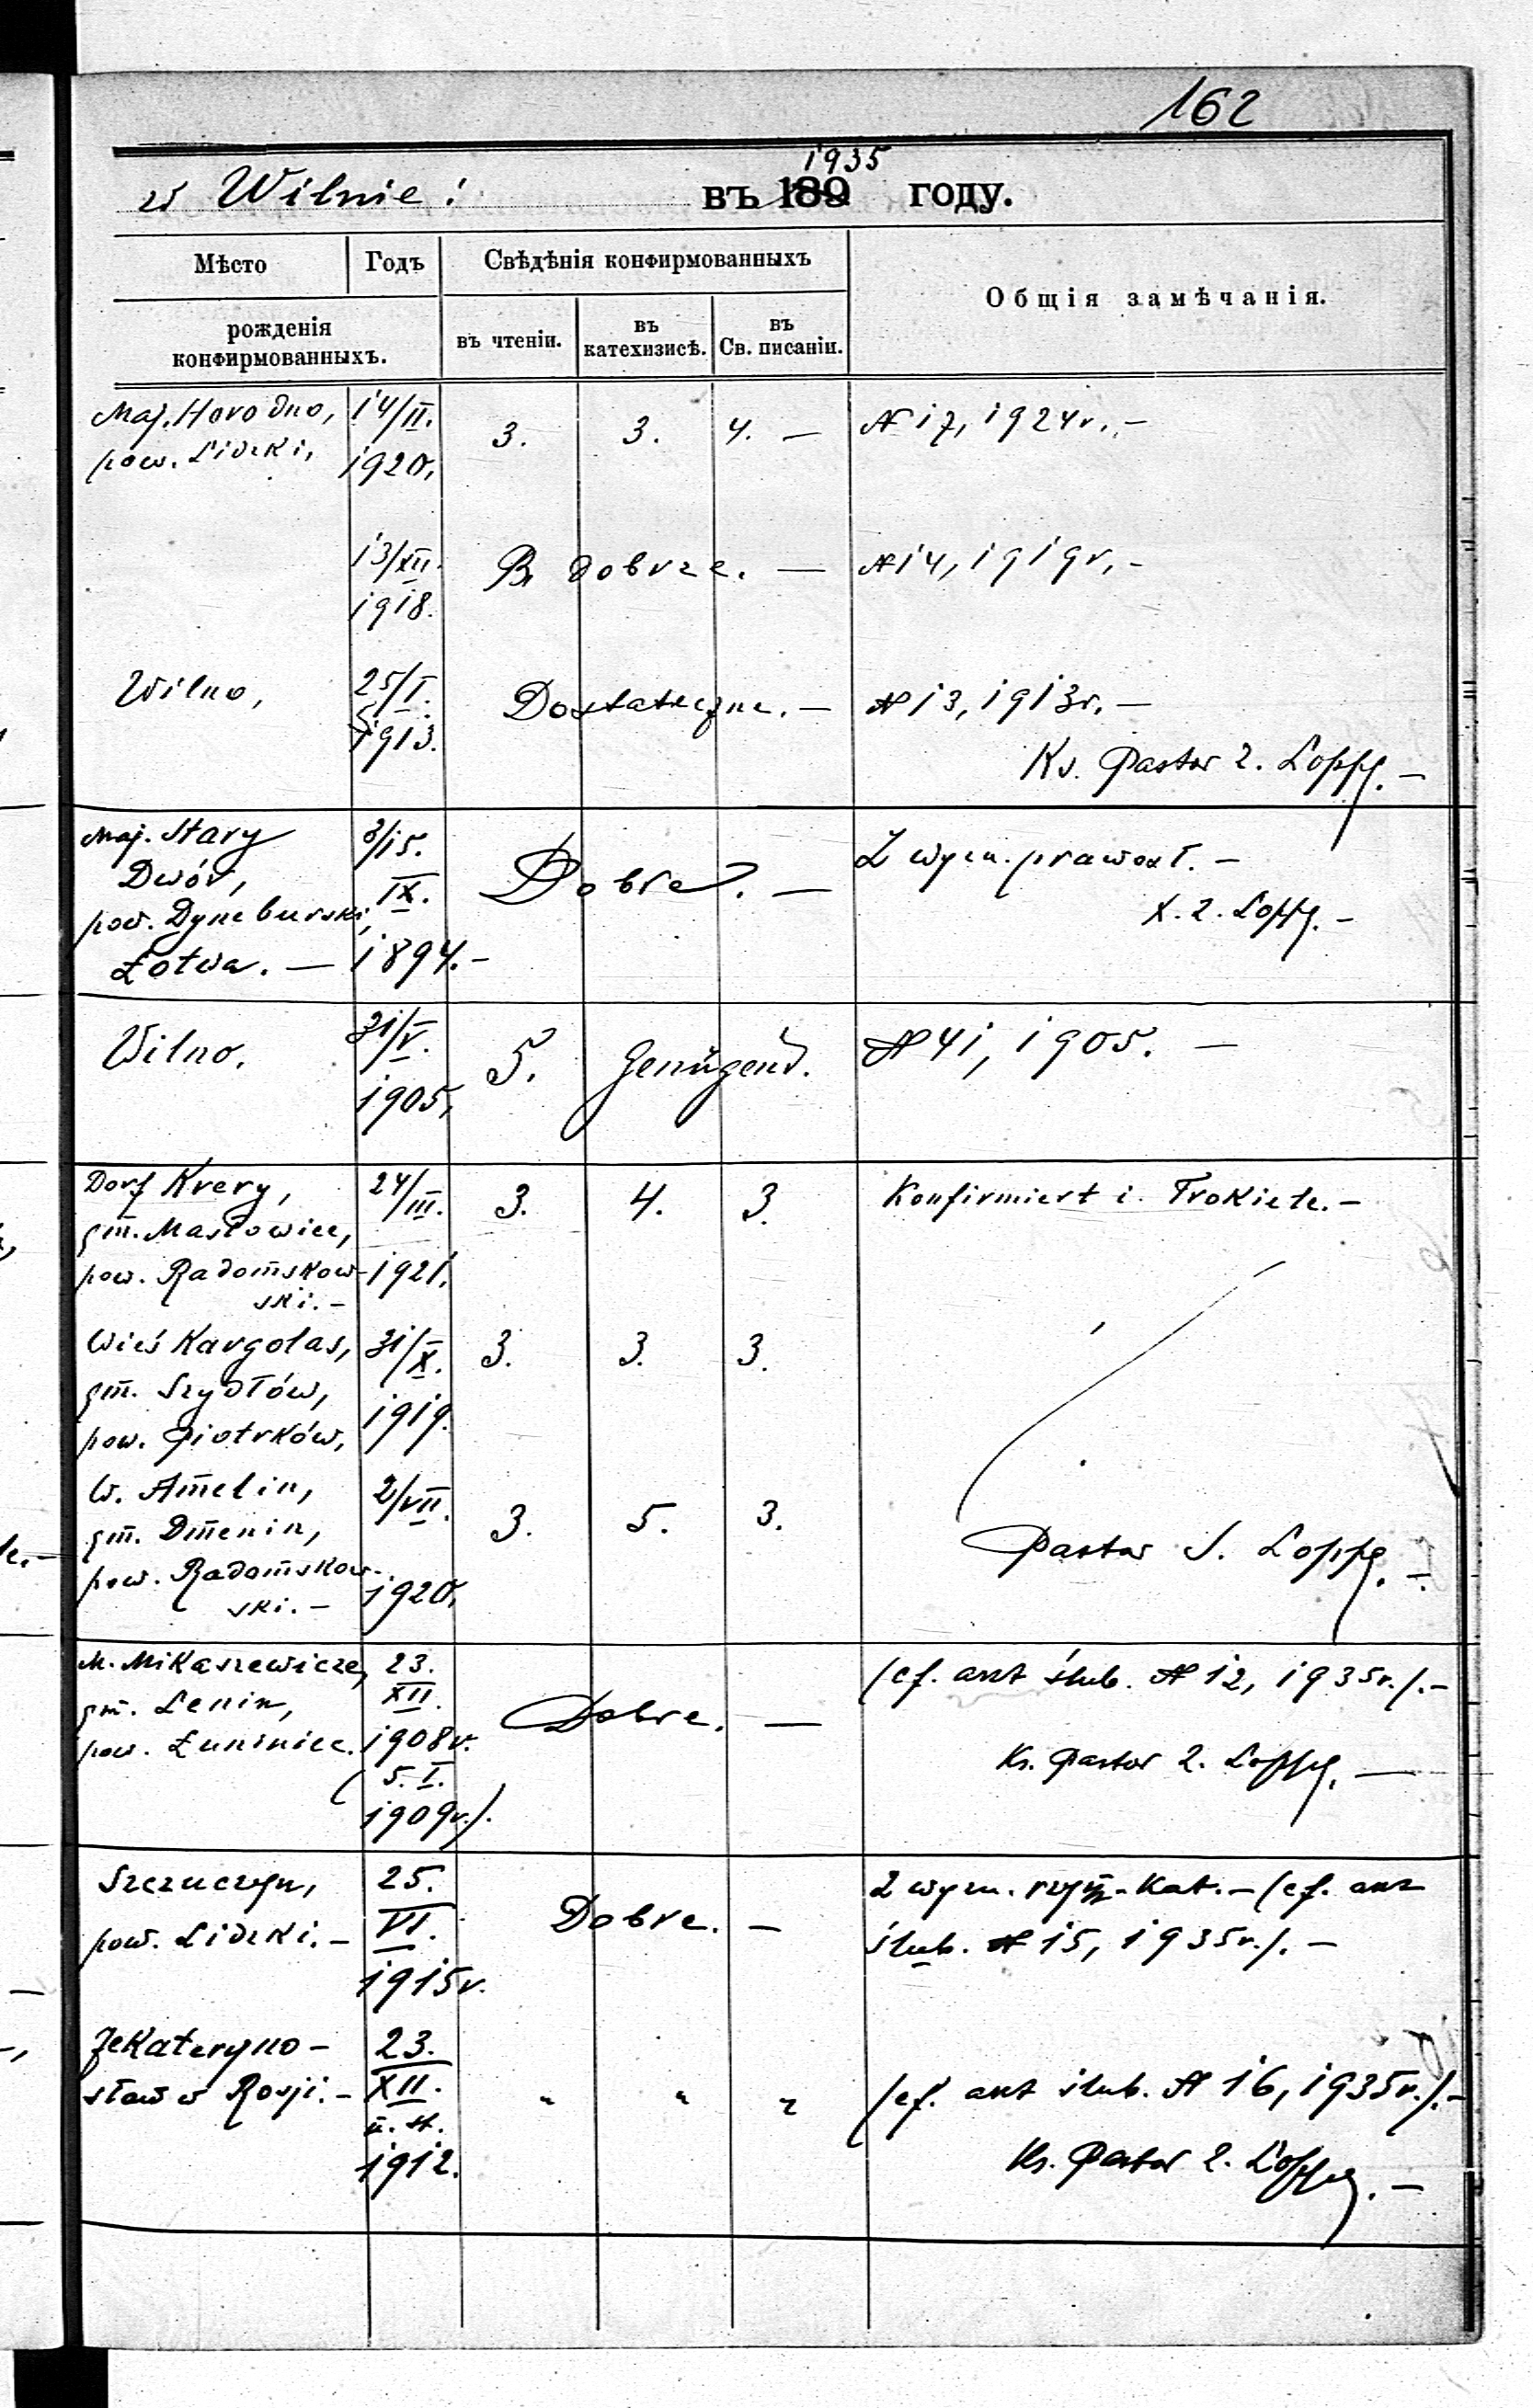 162
w Wilnie! въ 189 1935 году.
Мѣсто Годъ Свѣдѣнія конфирмованныхъ Общія замѣчанія.
рожденія конфирмованныхъ. въ чтеніи. въ катехизисѣ. въ Св. писаніи.
Maj. Horodno, 14/II. 3. 3. 4. — № 17, 1924r. –
pow. Lidzki, 1920,
13/XII. B. dobrze. — № 14, 1919r. –
1918.
Wilno, 25/I. Dostateczne. — № 13, 1913r. —
1913.
Ks. Pastor Loppe. —
Maj. Stary 3/15. Dobre. — Z wyzn. prawosł. –
Dwór, IX.
pow. Dyneburski, Loppe. –
Łotwa. — 1894. –
Wilno. 31/V. 5. Genügend. № 41, 1905. —
1905,
Dorf Krery, 24/III. 3. 4. 3. Konfirmiert i. Trokiele. –
gm. Masłowice,
pow. Radomskow- 1921.
ski. –
Wieś Kargołas, 31/X. 3. 3. 3.
gm. Szydłów,
pow. Piotrków, 1919.
W. Amelin, 2/VII. 3. 5. 3.
gm. Dmenin,
pow. Radomskow- 1920,
ski. –
Pastor S. Loppe. –
M. Mikaszewicze, 23. XII. Dobre. — (cf. akt ślub. № 12, 1935r.). –
gm. Lenin,
pow. Łuniniec. 1908r. Ks. Pastor Loppe. —
(5. I.
1909r.).
Szczuczyn, 25. Dobre. — Z wyzn. rzym-kat. – (cf. akt
pow. Lidzki. – VI. ślub. № 15, 1935r.). –
1915r.
Jekateryno- 23.
sław w Rosji. – XII. " " " (cf. akt ślub. № 16, 1935r.). –
n. st.
1912. Ks. Pastor Loppe. —